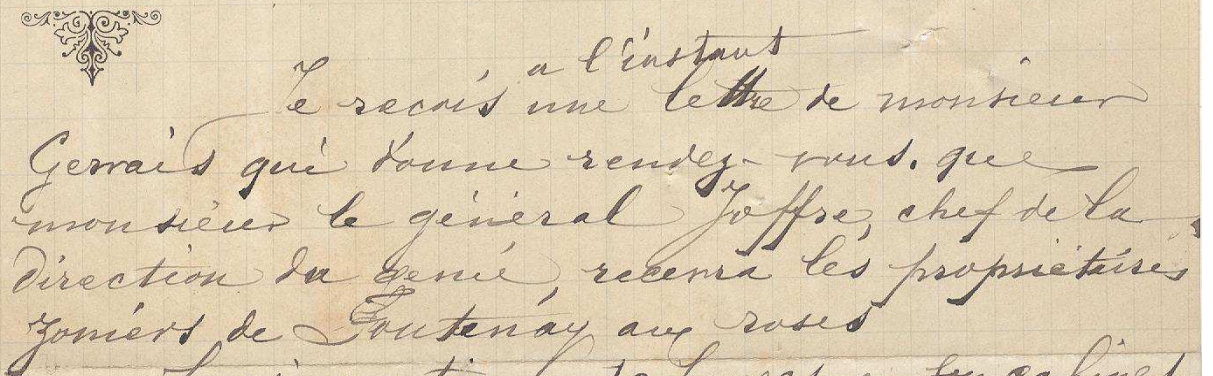 a l'instant
Je reçois une lettre de monsieur
Gervais qui donne rendez-vous. que
monsieur le général Joffre, chef de la
direction du genie, recevra les propriétaires
zoniers de Fontenay aux roses